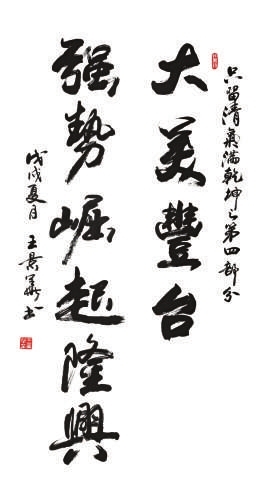 只留清氣滿乾坤之第四部分
大美豐台
强勢崛起隆興
戊戌夏月 王景華書